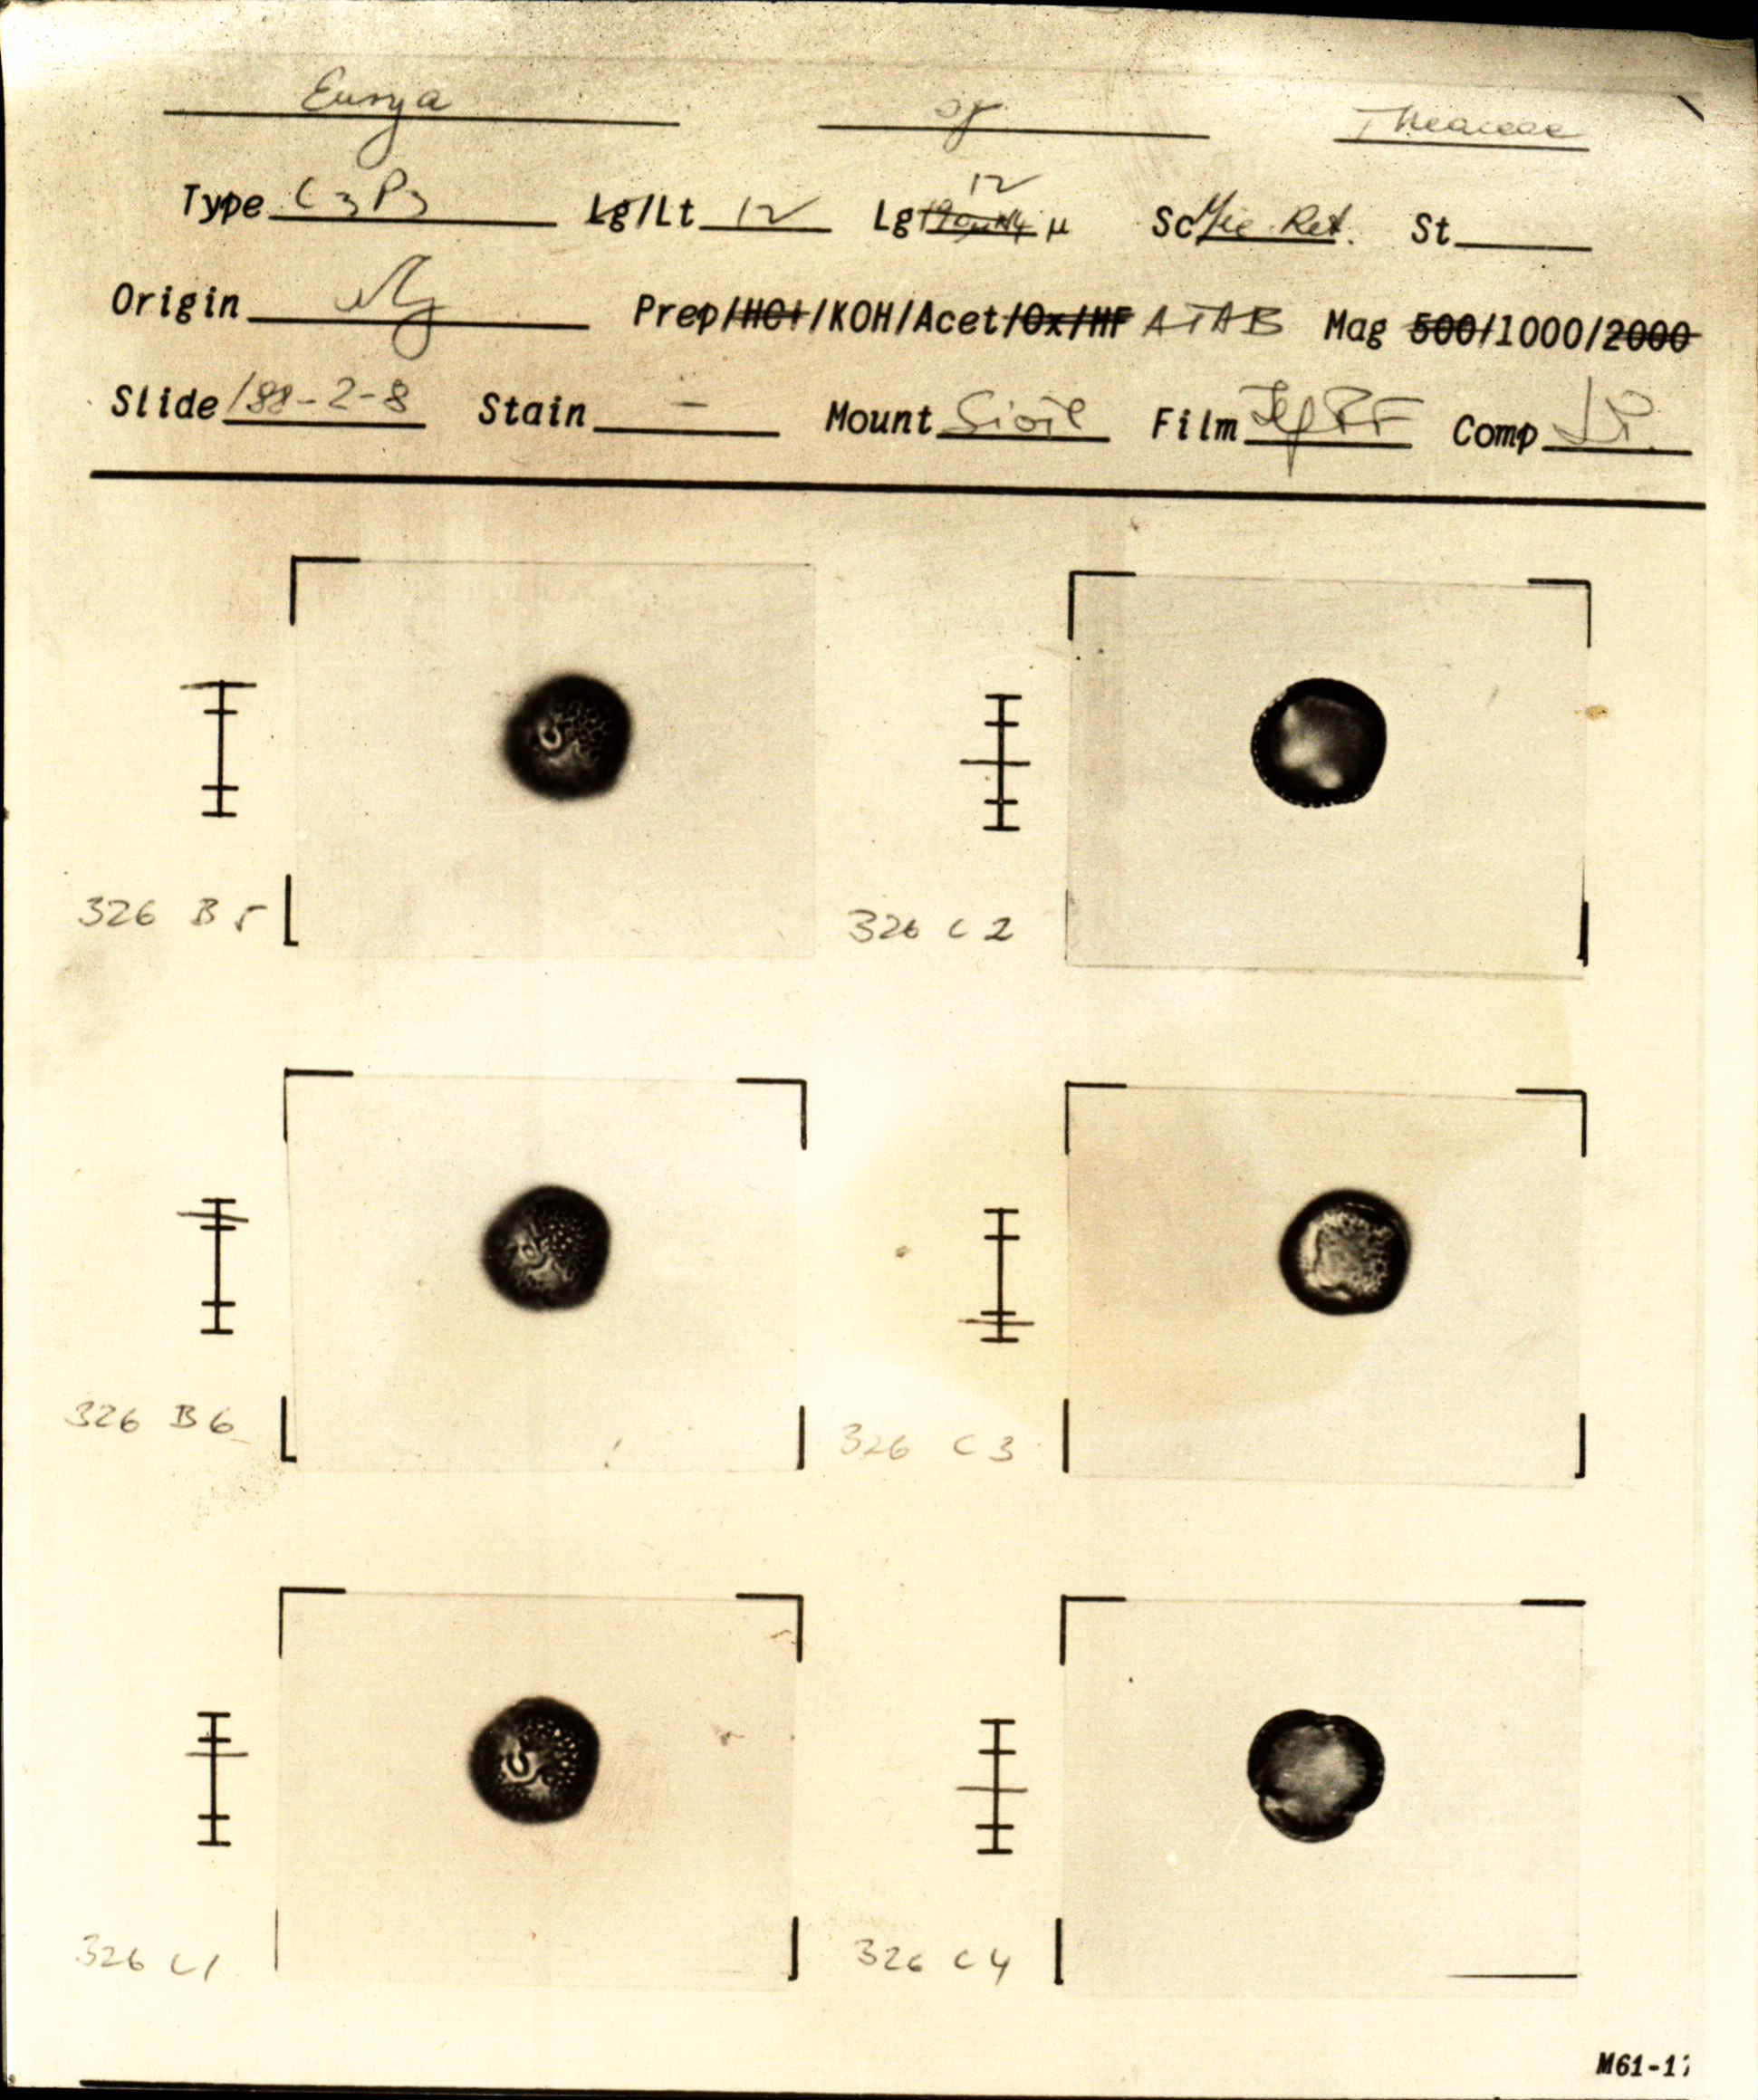 Eurya Theaceae
Type C3P3 Lg/Lt 12 Lg 12 μ Sc Mic Ret. St
Origin Prep/HCl/KOH/Acet/Ox/HF ATAB Mag 500/1000/2000
Slide 188-2-8 Stain - Mount Si oil Film Comp
326 B5 326 C2
326 B6 326 C3
326 C1 326 C4
M61-17